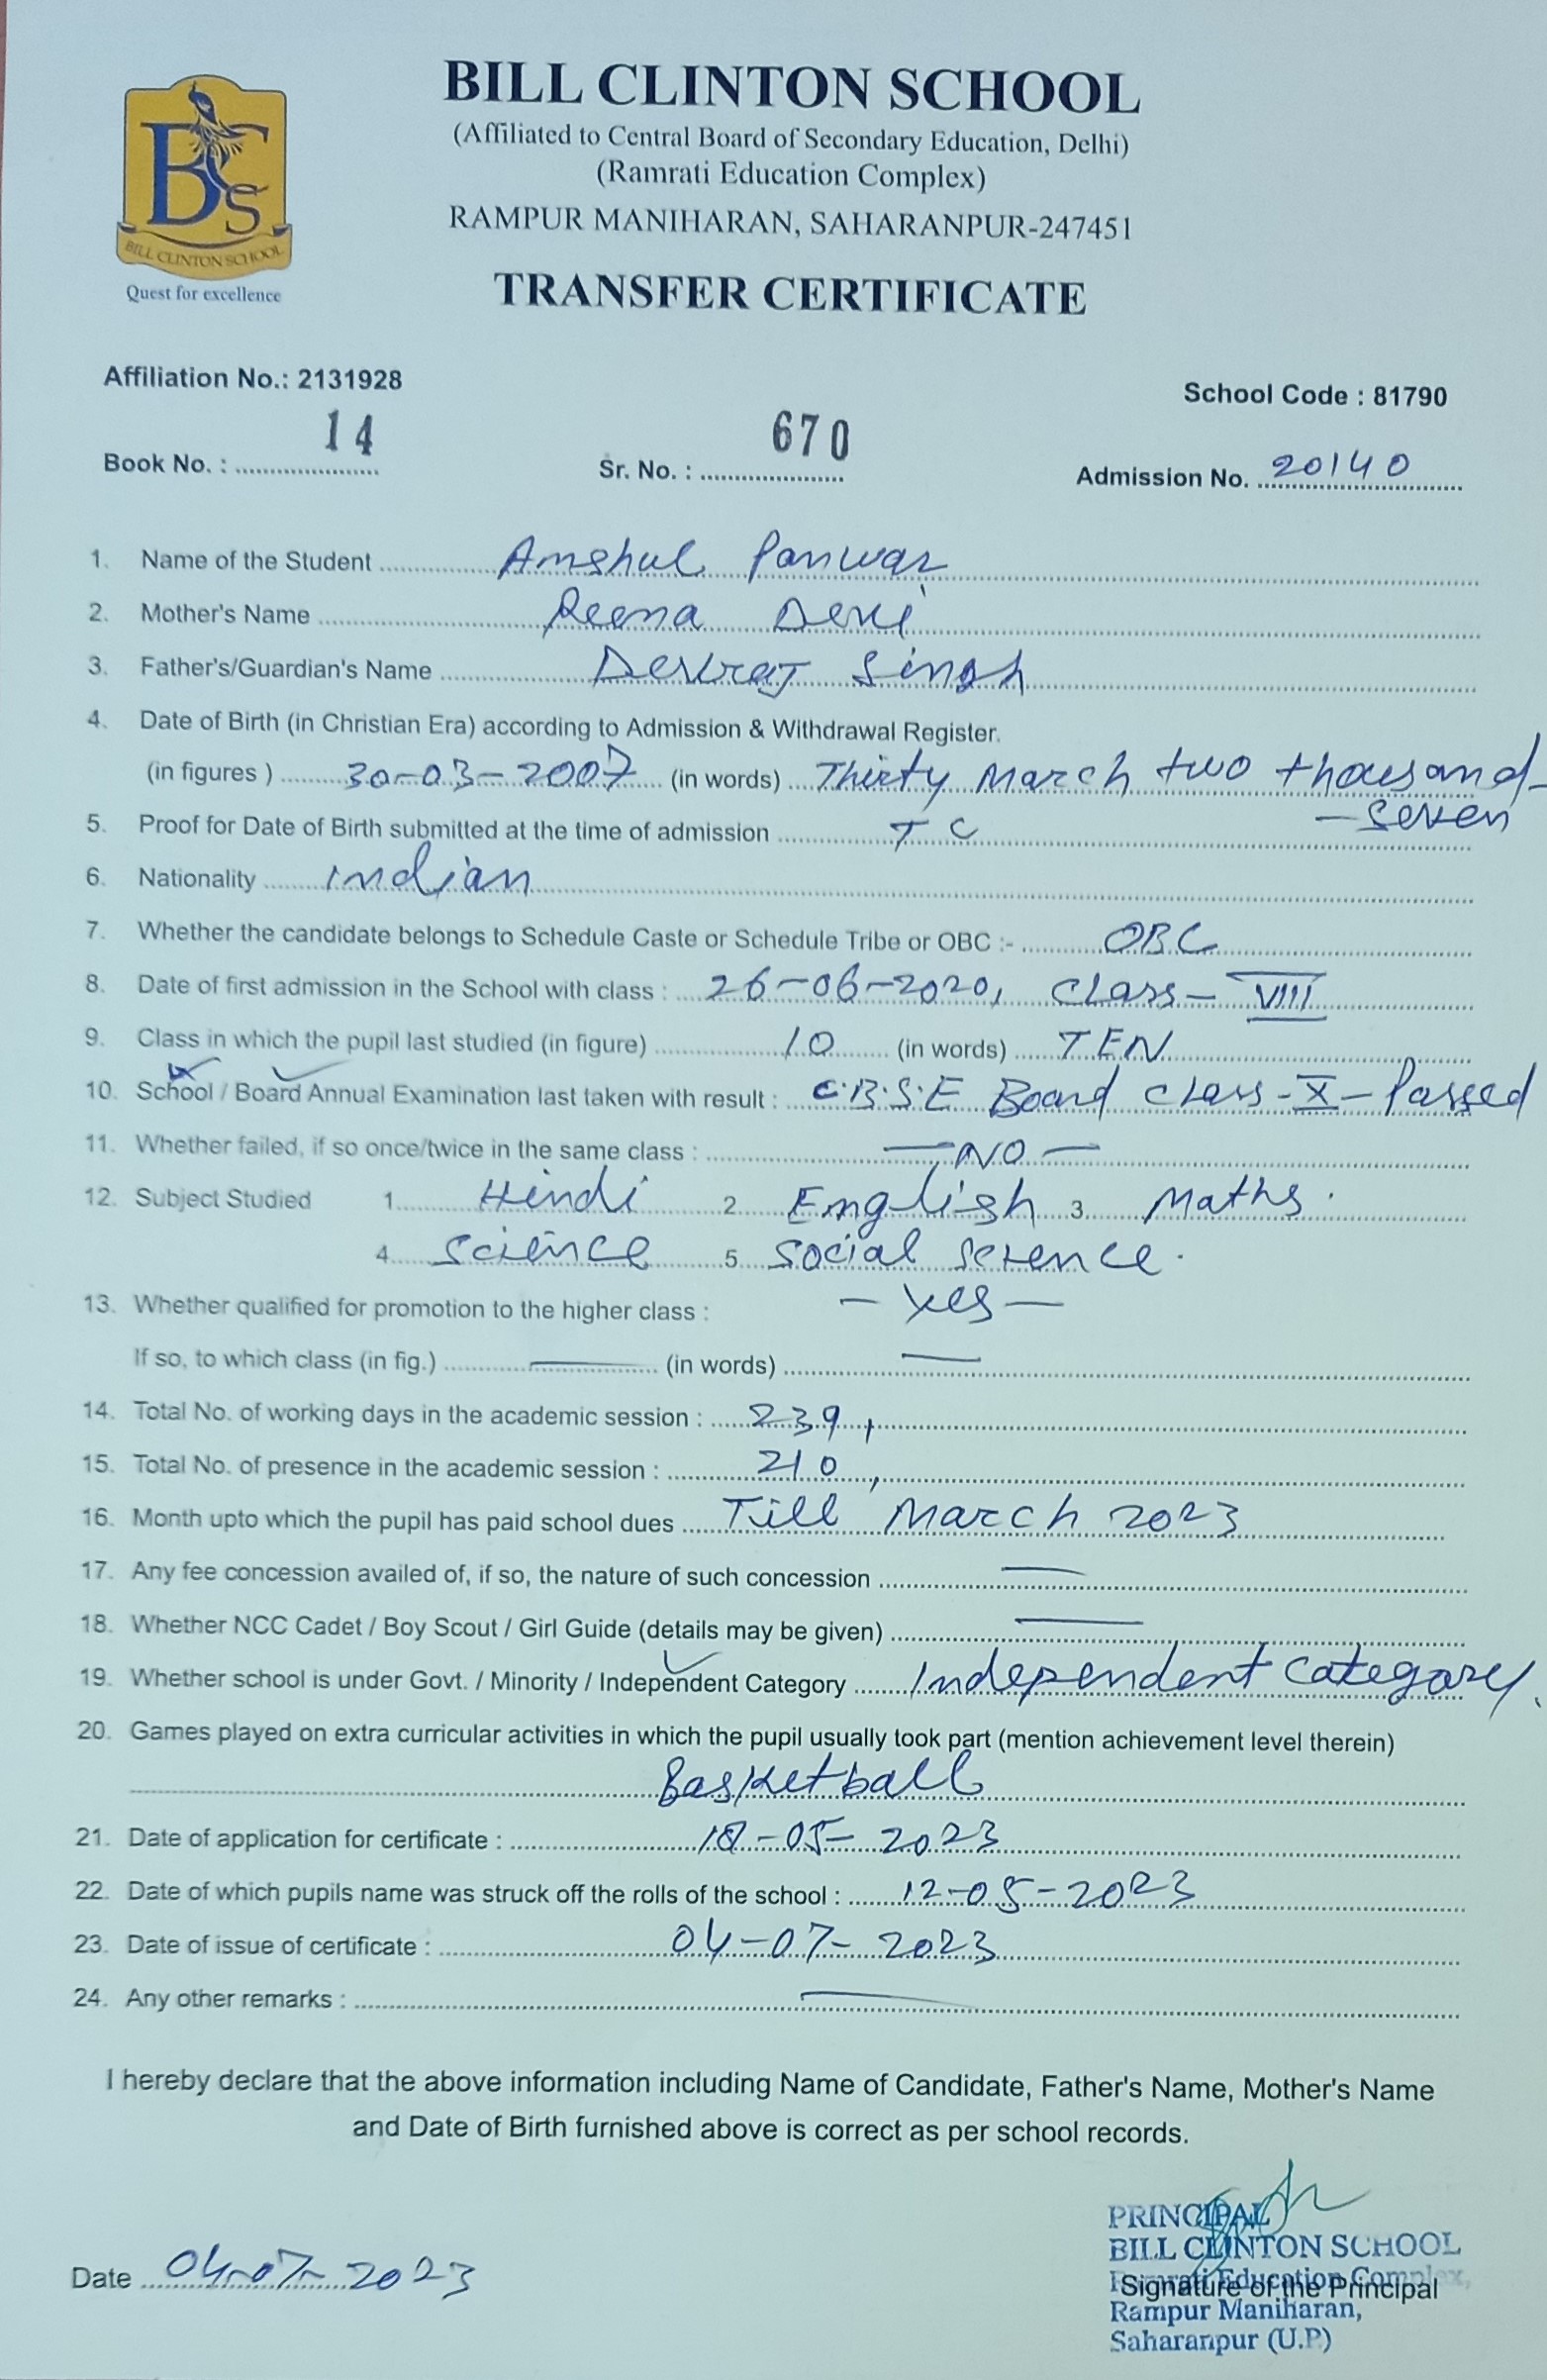 BILL CLINTON SCHOOL
(Affiliated to Central Board of Secondary Education, Delhi)
(Ramrati Education Complex)
RAMPUR MANIHARAN, SAHARANPUR-247451
BCS
BILL CLINTON SCHOOL
Quest for excellence
TRANSFER CERTIFICATE
Affiliation No.: 2131928
School Code : 81790
Book No. : 14 Sr. No. : 670 Admission No. 20140
1. Name of the Student Amshul Panwar
2. Mother's Name Reena Devi
3. Father's/Guardian's Name Devraj Singh
4. Date of Birth (in Christian Era) according to Admission & Withdrawal Register.
(in figures ) 30-03-2007 (in words) Thirty March two thousand-
-Seven
5. Proof for Date of Birth submitted at the time of admission T C
6. Nationality Indian
7. Whether the candidate belongs to Schedule Caste or Schedule Tribe or OBC :- OBC
8. Date of first admission in the School with class : 26-06-2020, Class-VIII
9. Class in which the pupil last studied (in figure) 10 (in words) TEN
10. School / Board Annual Examination last taken with result : C.B.S.E Board Class-X-Passed
11. Whether failed, if so once/twice in the same class : -NO-
12. Subject Studied 1. Hindi 2. English 3. Maths.
4. Science 5. Social Science.
13. Whether qualified for promotion to the higher class : - Yes -
If so, to which class (in fig.) — (in words) —
14. Total No. of working days in the academic session : 239,
15. Total No. of presence in the academic session : 210,
16. Month upto which the pupil has paid school dues Till March 2023
17. Any fee concession availed of, if so, the nature of such concession —
18. Whether NCC Cadet / Boy Scout / Girl Guide (details may be given) —
19. Whether school is under Govt. / Minority / Independent Category Independent Category.
20. Games played on extra curricular activities in which the pupil usually took part (mention achievement level therein)
Basketball
21. Date of application for certificate : -05-2023
22. Date of which pupils name was struck off the rolls of the school : 12-05-2023
23. Date of issue of certificate : 04-07-2023
24. Any other remarks : —
I hereby declare that the above information including Name of Candidate, Father's Name, Mother's Name
and Date of Birth furnished above is correct as per school records.
PRINCIPAL
BILL CLINTON SCHOOL
Ramrati Education Complex,
Signature of the Principal
Rampur Maniharan,
Saharanpur (U.P)
Date 04-07-2023